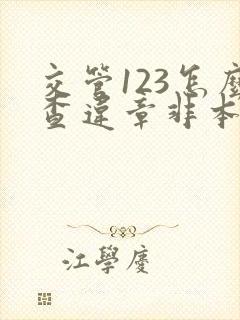 交管123怎麼
查違章非本
江學慶